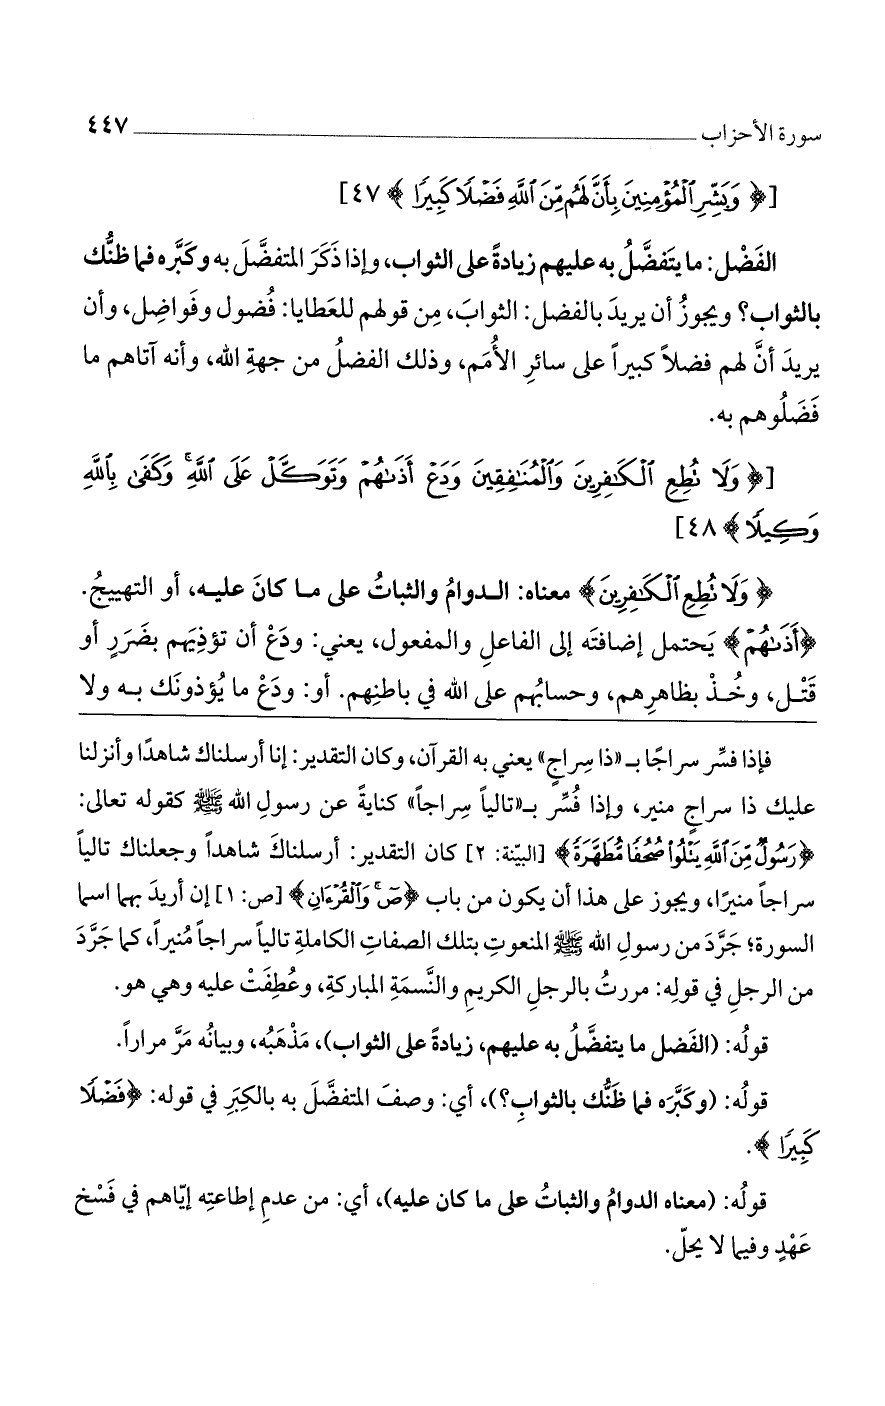 سورة الأحزاب ٤٤٧
[﴿ وَبَشِّرِ ٱلْمُؤْمِنِينَ بِأَنَّ لَهُم مِّنَ ٱللَّهِ فَضْلًا كَبِيرًا ﴾ ٤٧]
الفَضْل: ما يتَفضَّلُ به عليهم زيادةً على الثواب، وإذا ذَكَرَ المتفضَّلَ به وكَبَّره فما ظنُّك
بالثواب؟ ويجوزُ أن يريدَ بالفضل: الثوابَ، مِن قولهم للعَطايا: فُضول وفَواضِل، وأن
يريدَ أنَّ لهم فضلاً كبيراً على سائرِ الأُمَم، وذلك الفضلُ من جهةِ الله، وأنه آتاهم ما
فَضَلُوهم به.
[﴿ وَلَا تُطِعِ ٱلْكَـٰفِرِينَ وَٱلْمُنَـٰفِقِينَ وَدَعْ أَذَىٰهُمْ وَتَوَكَّلْ عَلَى ٱللَّهِ ۚ وَكَفَىٰ بِٱللَّهِ
وَكِيلًا ﴾ ٤٨]
﴿ وَلَا تُطِعِ ٱلْكَـٰفِرِينَ﴾ معناه: الـدوامُ والثباتُ على مـا كانَ عليـه، أو التهييجُ.
﴿أَذَىٰهُمْ﴾ يَحتمل إضافتَه إلى الفاعلِ والمفعول، يعني: ودَعْ أن تؤذِيَهم بضَرَرٍ أو
قَتْـل، وخُـذْ بظاهرِهم، وحسابُهم على الله في باطنِهم. أو: ودَعْ ما يُؤذونَك بـه ولا
فإذا فسِّر سراجًا بـ«ذا سِراجٍ» يعني به القرآن، وكان التقدير: إنا أرسلناك شاهدًا وأنزلنا
عليك ذا سراجٍ منير، وإذا فُسِّر بـ«تالياً سِراجاً» كنايةً عن رسولِ الله ﷺ كقوله تعالى:
﴿رَسُولٌ مِّنَ ٱللَّهِ يَتْلُوا۟ صُحُفًا مُّطَهَّرَةً﴾ [البيّنة: ٢] كان التقدير: أرسلناكَ شاهداً وجعلناك تالياً
سراجاً منيرًا، ويجوز على هذا أن يكون من باب ﴿صٓ ۚ وَٱلْقُرْءَانِ﴾ [ص: ١] إن أريدَ بهما اسما
السورة؛ جَرَّدَ من رسولِ الله ﷺ المنعوتِ بتلك الصفاتِ الكاملةِ تالياً سراجاً مُنيراً، كما جَرَّدَ
من الرجلِ في قولِه: مررتُ بالرجلِ الكريمِ والنَّسمَةِ المباركةِ، وعُطِفَتْ عليه وهي هو.
قولُه: (الفَضل ما يتفضَّلُ به عليهم، زيادةً على الثواب)، مَذْهَبُه، وبيانُه مَرَّ مراراً.
قولُه: (وكَبَّرَه فما ظَنُّك بالثوابِ؟)، أي: وصفَ المتفضَّلَ به بالكِبَرِ في قوله: ﴿فَضْلًا
كَبِيرًا ﴾.
قولُه: (معناه الدوامُ والثباتُ على ما كان عليه)، أي: من عدمِ إطاعتِه إيّاهم في فَسْخ
عَهْدٍ وفيما لا يحلّ.